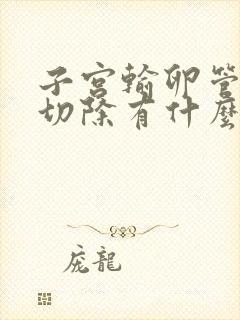 子宫輸卵管
切除有什麼
庞龍